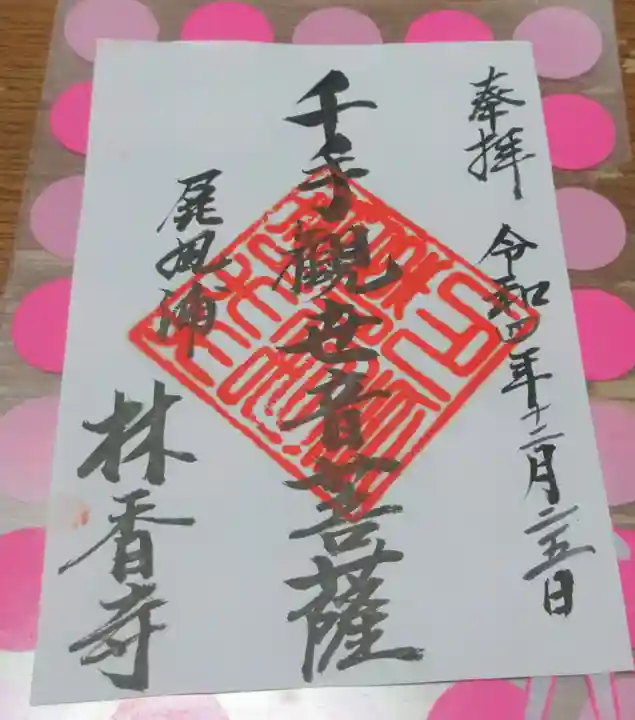 奉拝
令和四年十二月二五日
千手觀世音菩薩
屏風浦
林香寺